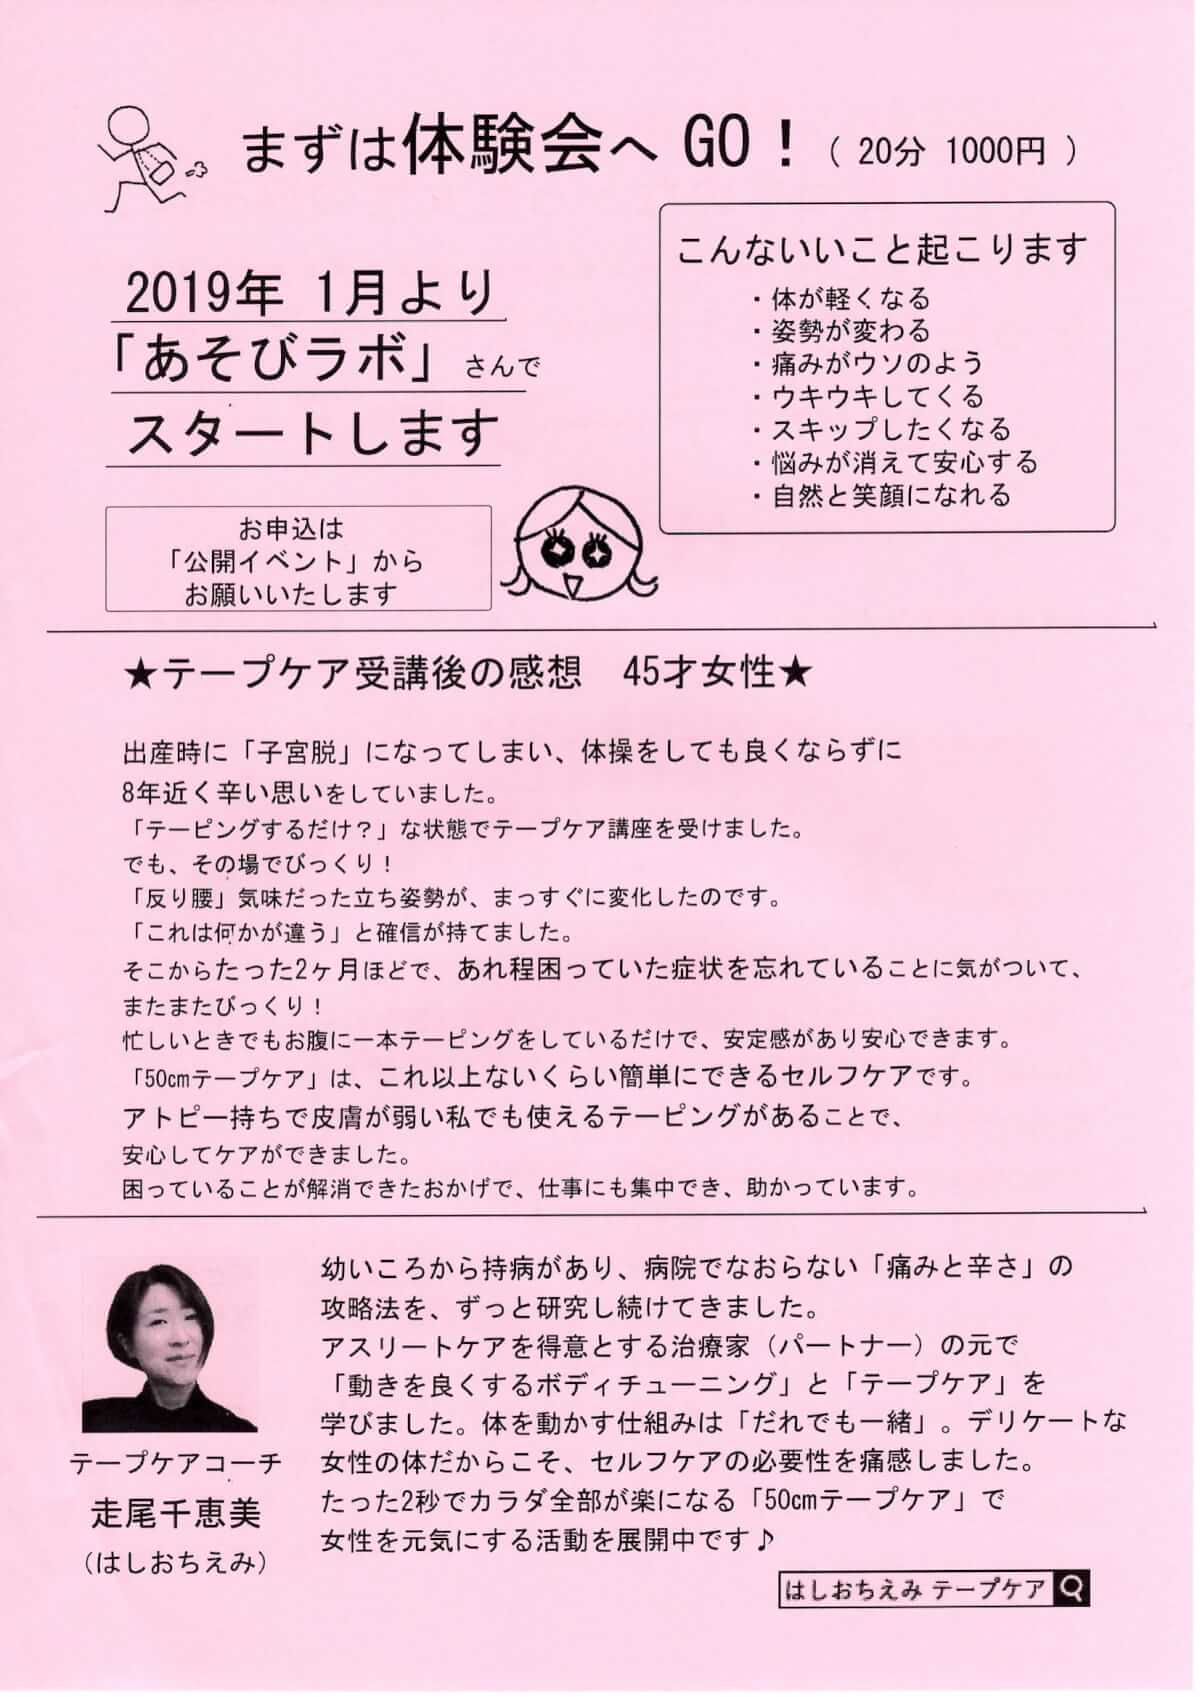 まずは体験会へ GO！（ 20分 1000円 ）
2019年 1月より
「あそびラボ」さんで
スタートします
お申込は
「公開イベント」から
お願いいたします
こんないいこと起こります
・体が軽くなる
・姿勢が変わる
・痛みがウソのよう
・ウキウキしてくる
・スキップしたくなる
・悩みが消えて安心する
・自然と笑顔になれる
★テープケア受講後の感想　45才女性★
出産時に「子宮脱」になってしまい、体操をしても良くならずに
8年近く辛い思いをしていました。
「テーピングするだけ？」な状態でテープケア講座を受けました。
でも、その場でびっくり！
「反り腰」気味だった立ち姿勢が、まっすぐに変化したのです。
「これは何かが違う」と確信が持てました。
そこからたった2ヶ月ほどで、あれ程困っていた症状を忘れていることに気がついて、
またまたびっくり！
忙しいときでもお腹に一本テーピングをしているだけで、安定感があり安心できます。
「50cmテープケア」は、これ以上ないくらい簡単にできるセルフケアです。
アトピー持ちで皮膚が弱い私でも使えるテーピングがあることで、
安心してケアができました。
困っていることが解消できたおかげで、仕事にも集中でき、助かっています。
幼いころから持病があり、病院でなおらない「痛みと辛さ」の
攻略法を、ずっと研究し続けてきました。
アスリートケアを得意とする治療家（パートナー）の元で
「動きを良くするボディチューニング」と「テープケア」を
学びました。体を動かす仕組みは「だれでも一緒」。デリケートな
女性の体だからこそ、セルフケアの必要性を痛感しました。
たった2秒でカラダ全部が楽になる「50cmテープケア」で
女性を元気にする活動を展開中です♪
テープケアコーチ
走尾千恵美
（はしおちえみ）
はしおちえみ テープケア